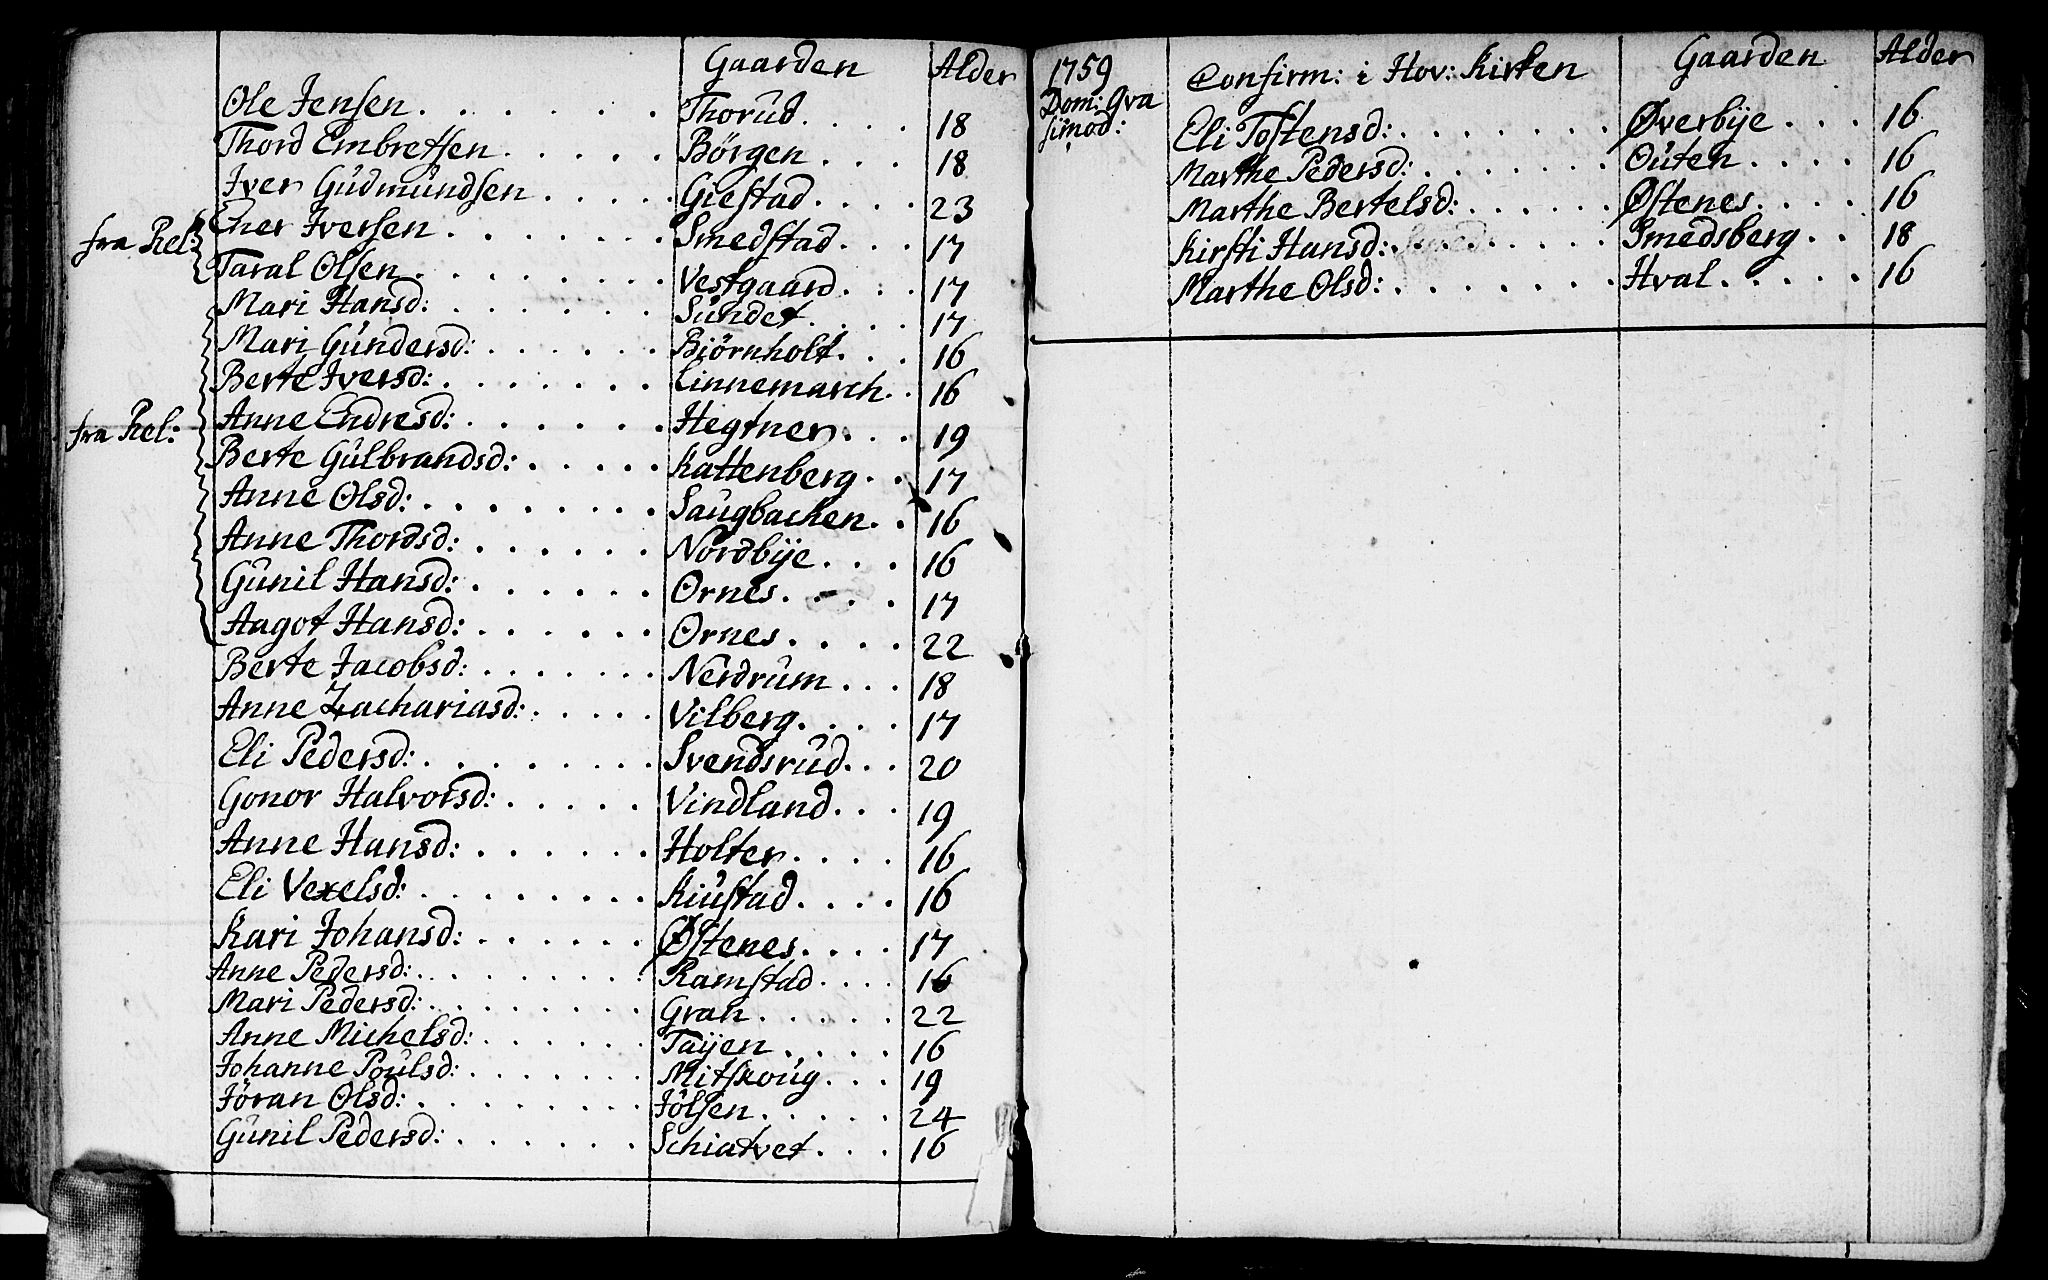 Gaarden Alder
Ole Jensen. Thorud. 18
Thord Embretsen. Börgen. 18
Iver Gudmundsen. Giestad. 23
fra Rel: Ener Iversen. Smedstad. 17
Taral Olsen. Vestgaard. 17
Mari Hansd: Sundet. 17
Mari Gundersd: Biörnholt. 16
Berte Iversd: Linnemarch. 16
fra Rel: Anne Endresd: Hegtner. 19
Berte Gulbrandsd: Kattenberg. 17
Anne Olsd: Saugbachen. 16
Anne Thordsd: Nordbÿe. 16
Gunil Hansd: Ornes. 17
Aagot Hansd: Ornes. 22
Berte Jacobsd: Nerdrum. 18
Anne Zachariasd: Vilberg. 17
Eli Pedersd: Svendsrud. 20
Gonor Halvorsd: Vindland. 19
Anne Hansd: Holter. 16
Eli Vexelsd: Kiustad. 16
Kari Johansd: Østenes. 17
Anne Pedersd: Ramstad. 16
Mari Pedersd: Gran. 22
Anne Michelsd: Taÿen. 16
Johanne Poulsd: Mitskoug. 19
Jöran Olsd: Jölsen. 24
Gunil Pedersd: Schiatvet. 16
1759 Confirm: i Hov: Kirken Gaarden Alder
Dom: Qva
simod: Eli Tostensd: Øverbÿe. 16
Marthe Pedersd: Outen. 16
Marthe Bertelsd: Østenes. 16
Kirsti Hansd: Smedsberg. 18
Marthe Olsd: Hval. 16